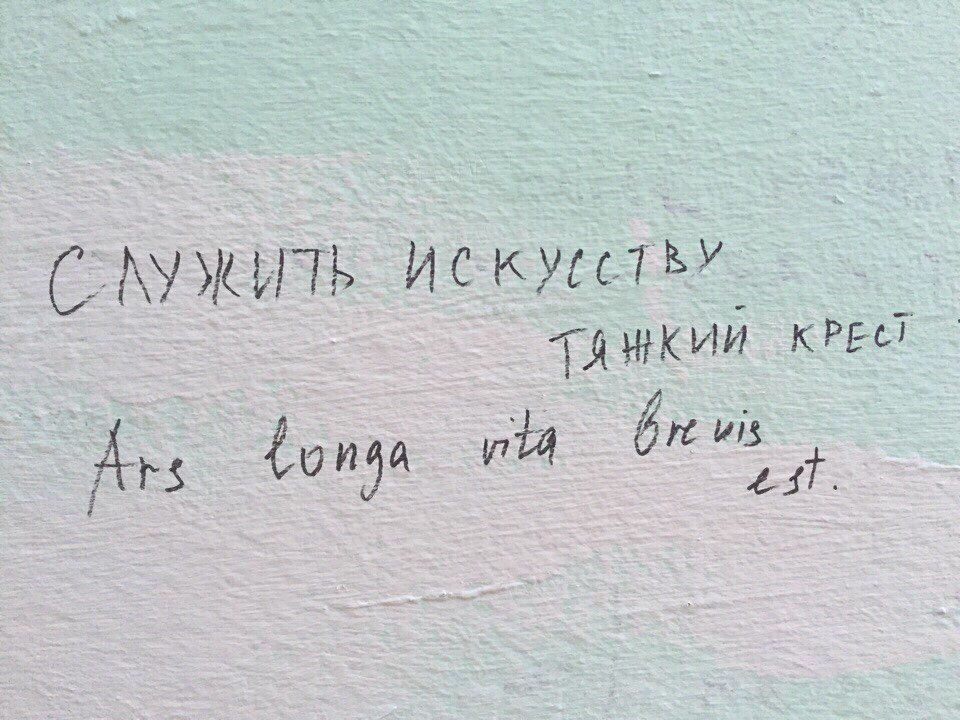 СЛУЖИТЬ ИСКУССТВУ
ТЯЖКИЙ КРЕСТ
Ars longa vita brevis
est.